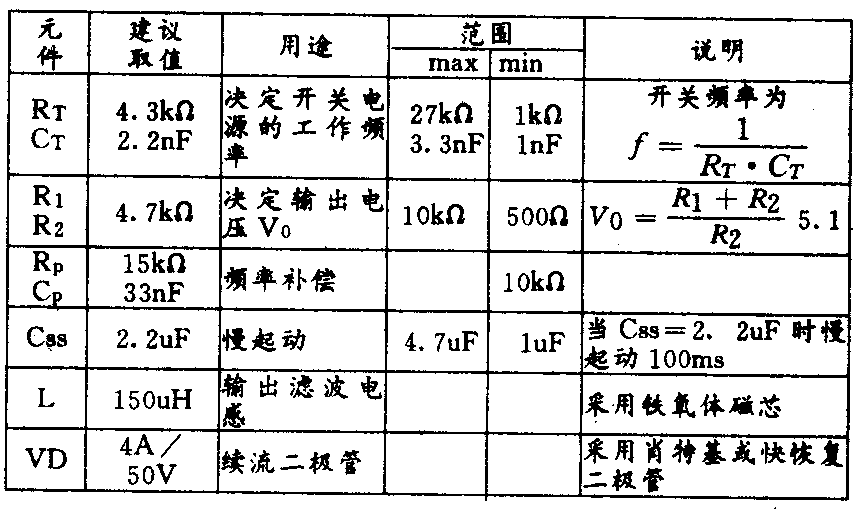 元件 建议取值 用途 范围 说明
max min
RT 4.3kΩ 决定开关电源的工作频率 27kΩ 1kΩ 开关频率为
CT 2.2nF 3.3nF 1nF f = 1 / (RT • CT)
R1 R2 4.7kΩ 决定输出电压V0 10kΩ 500Ω V0 = (R1 + R2) / R2 5.1
Rp 15kΩ 频率补偿 10kΩ
Cp 33nF
Css 2.2uF 慢起动 4.7uF 1uF 当Css=2. 2uF时慢起动100ms
L 150uH 输出滤波电感 采用铁氧体磁芯
VD 4A/50V 续流二极管 采用肖特基或快恢复二极管